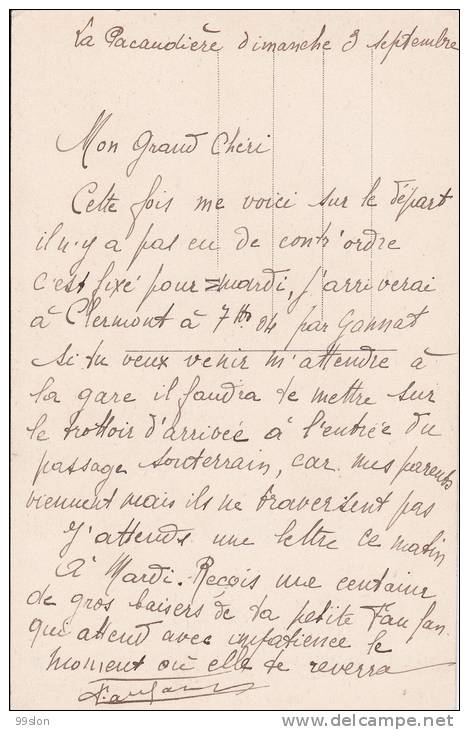 La Pacaudière dimanche 3 septembre
Mon Grand Chéri
Cette fois me voici sur le départ
il n'y a pas eu de contr'ordre
c'est fixé pour mardi, j'arriverai
à Clermont à 7h 04 par Gannat
si tu veux venir m'attendre à
la gare il faudra te mettre sur
le trottoir d'arrivée à l'entrée du
passage souterrain, car mes parents
viennent mais ils ne traversent pas
J'attends une lettre ce matin
A Mardi. Reçois une centaine
de gros baisers de ta petite Fanfan
qui attend avec impatience le
moment où elle te reverra
Fanfan
99slon
© delcampe.net